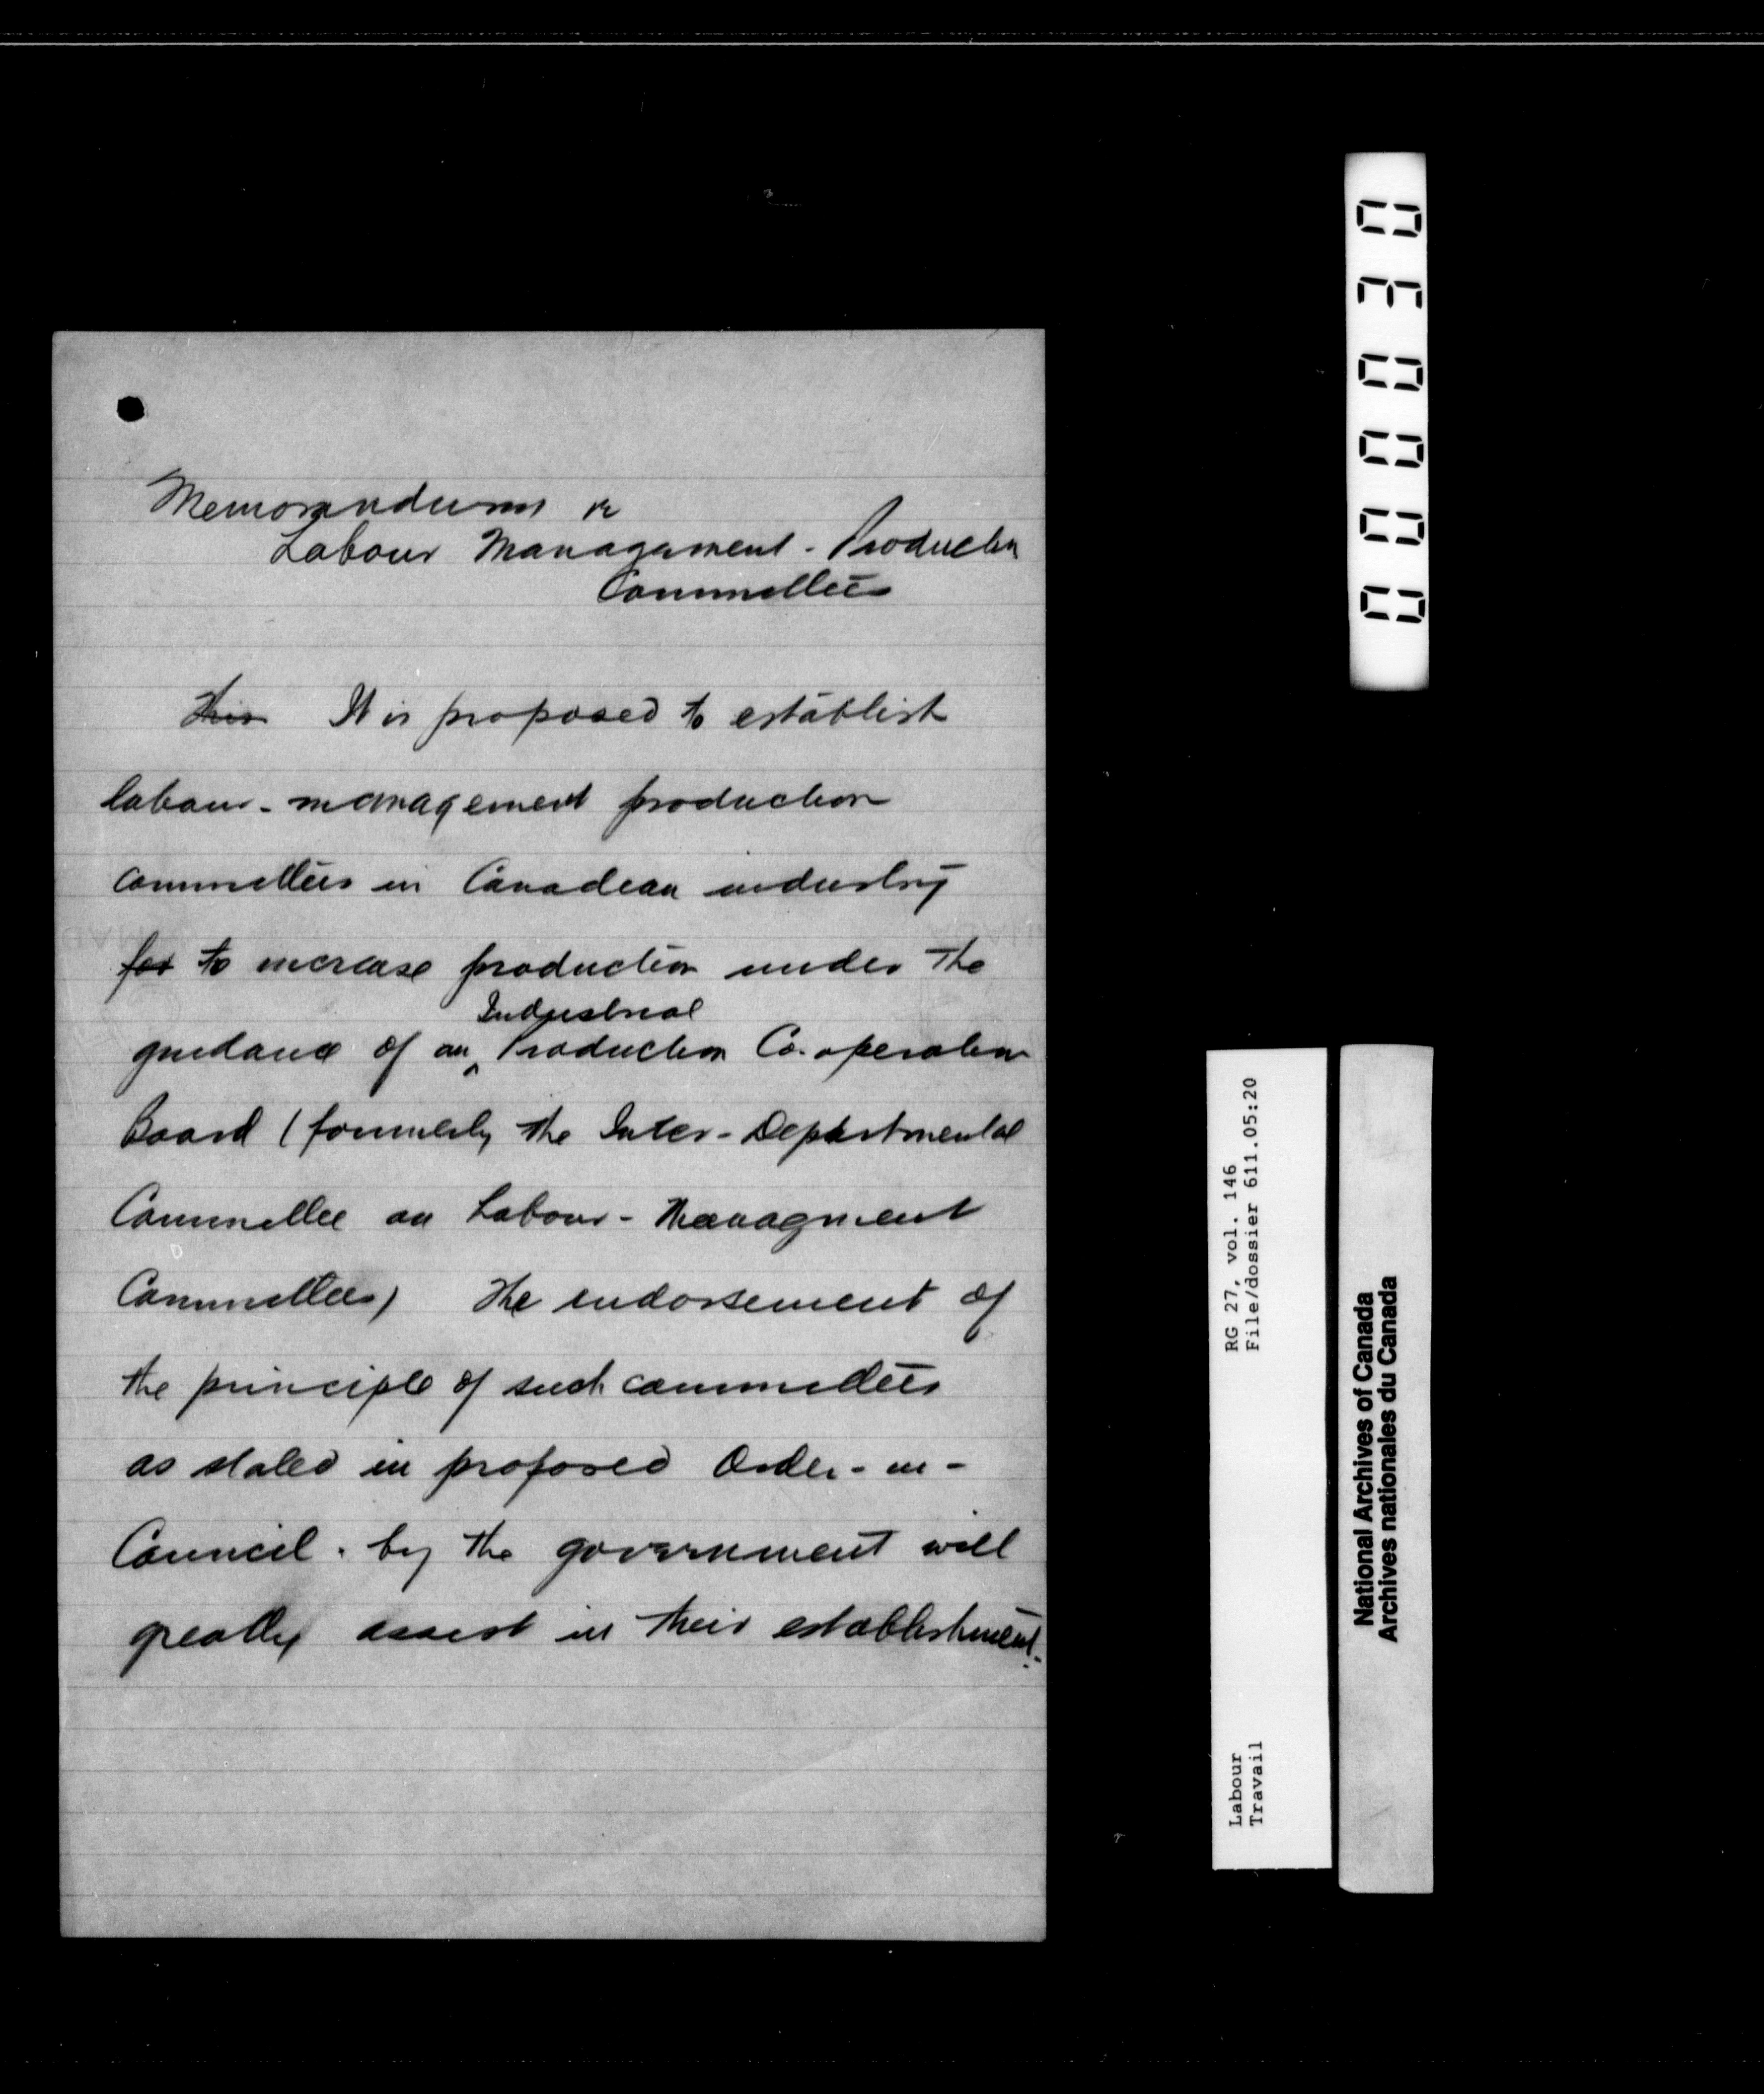 Memorandum re
Labour Management - Production
Committees
This It is proposed to establish
labour - management production
committees in Canadian industry
for to increase production under the
Industrial
guidance of an Production Co-operation
Board (formerly the Inter-Departmental
Committee on Labour - Managment
Committees) The endorsement of
the principle of such committees
as stated in proposed Order-in-
Council. by the government will
greatly assist in their establishment.
000030
RG 27, vol. 146
File/dossier 611.05:20
Labour
Travail
National Archives of Canada
Archives nationales du Canada